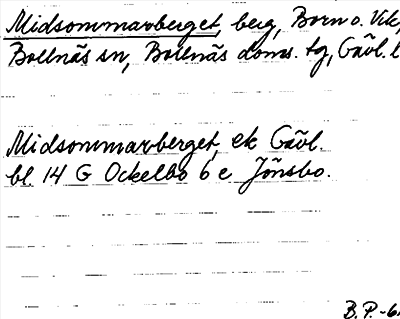 Midsommarberget, berg, Born o. Vik,
Bollnäs sn, Bollnäs doms. tg, Gävl. l
Midsommarberget, ek Gävl.
bl. 14 G Ockelbo 6 e Jönsbo.
B.P.-6